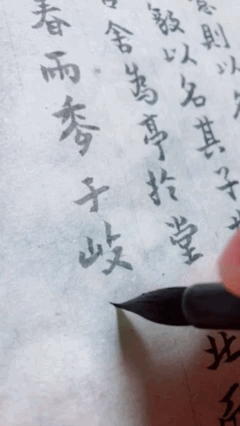 則以名
敵以名其子
舍為亭於堂 北
春雨麥于岐